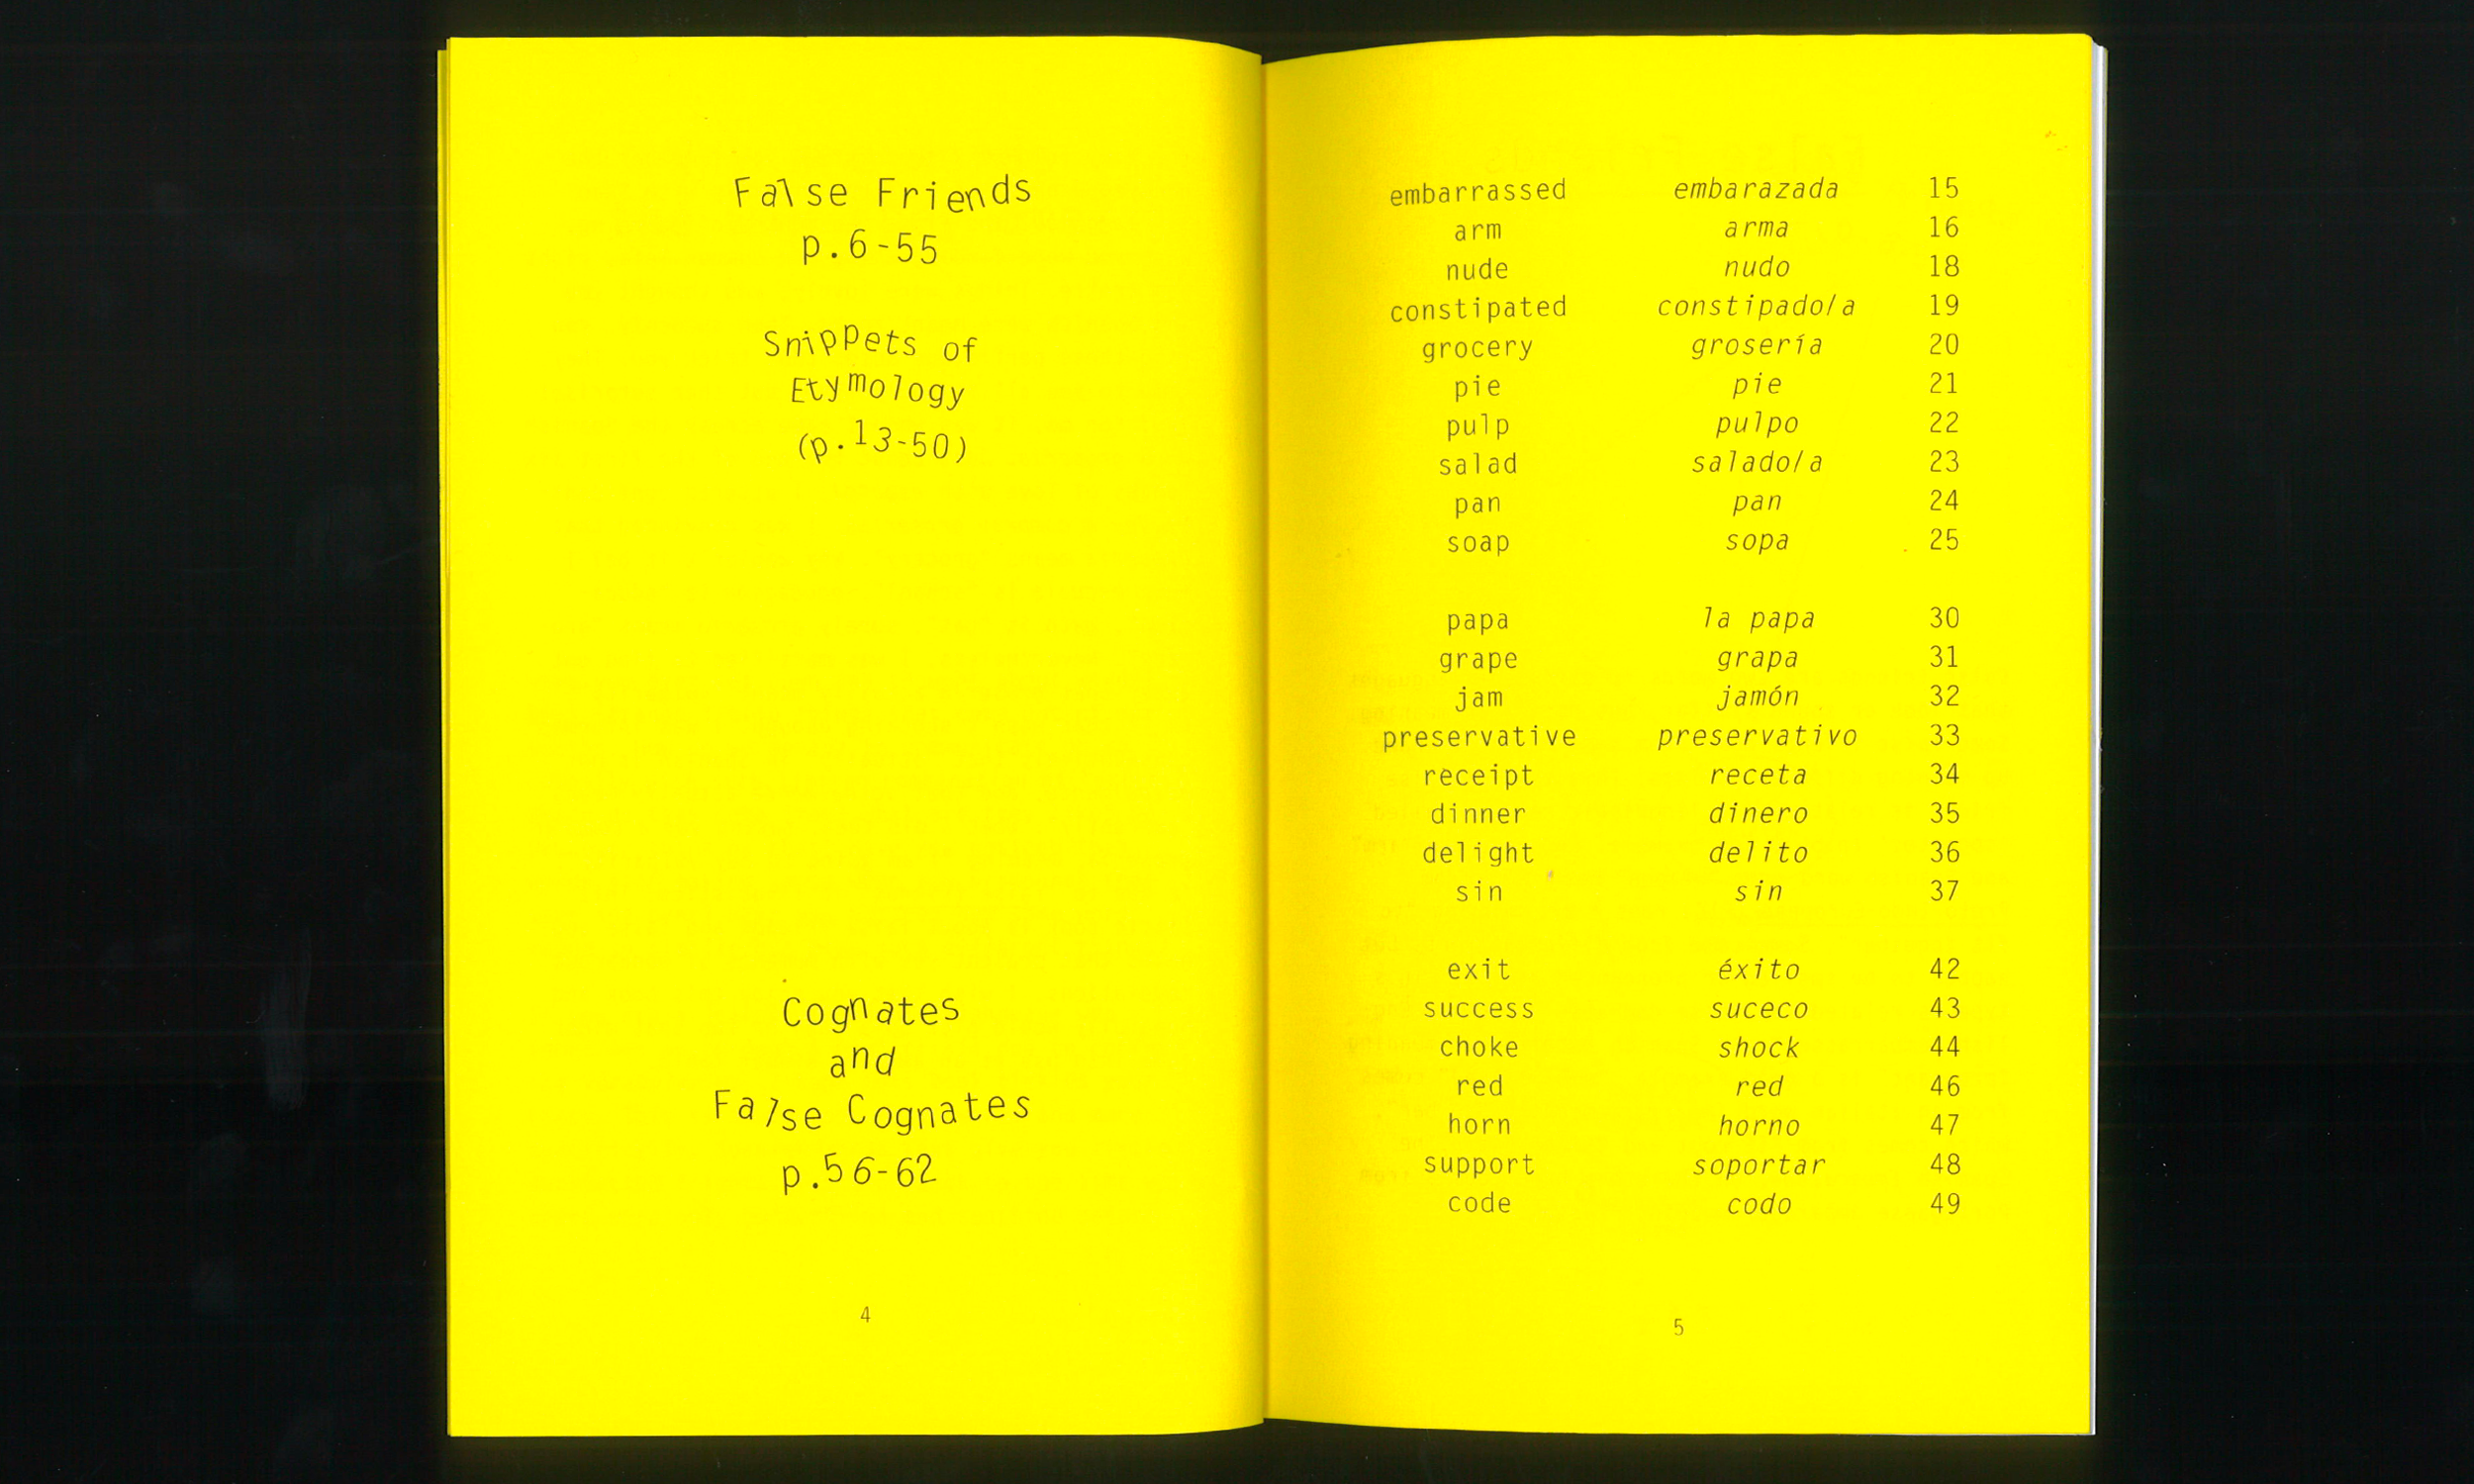 False Friends
p.6-55
Snippets of
Etymology
(p.13-50)
Cognates
and
False Cognates
p.56-62
4
embarrassed embarazada 15
arm arma 16
nude nudo 18
constipated constipado/a 19
grocery grosería 20
pie pie 21
pulp pulpo 22
salad salado/a 23
pan pan 24
soap sopa 25
papa la papa 30
grape grapa 31
jam jamón 32
preservative preservativo 33
receipt receta 34
dinner dinero 35
delight delito 36
sin sin 37
exit éxito 42
success suceco 43
choke shock 44
red red 46
horn horno 47
support soportar 48
code codo 49
5